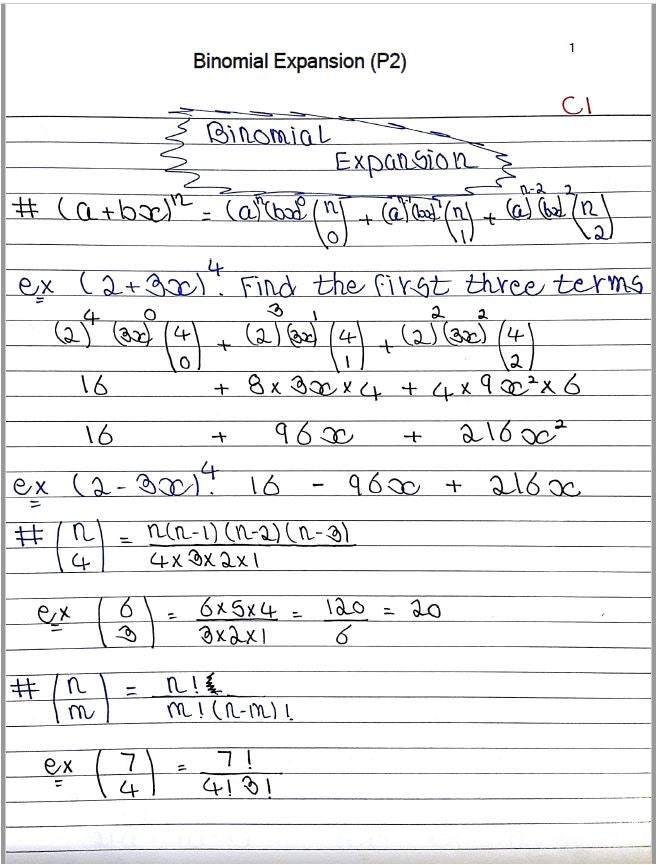 1
Binomial Expansion (P2)
C1
Binomial
Expansion
# (a+bx)ⁿ = (a)ⁿ(bx)⁰ (n 0) + (a)ⁿ⁻¹(bx)¹ (n 1) + (a)ⁿ⁻²(bx)² (n 2)
ex (2+3x)⁴. Find the first three terms
(2)⁴ (3x)⁰ (4 0) + (2)³ (3x)¹ (4 1) + (2)² (3x)² (4 2)
16 + 8 x 3x x 4 + 4 x 9x² x 6
16 + 96x + 216x²
ex (2-3x)⁴. 16 - 96x + 216x
# (n 4) = n(n-1)(n-2)(n-3) / 4x3x2x1
ex (6 3) = 6x5x4 / 3x2x1 = 120 / 6 = 20
# (n m) = n! / m!(n-m)!
ex (7 4) = 7! / 4! 3!